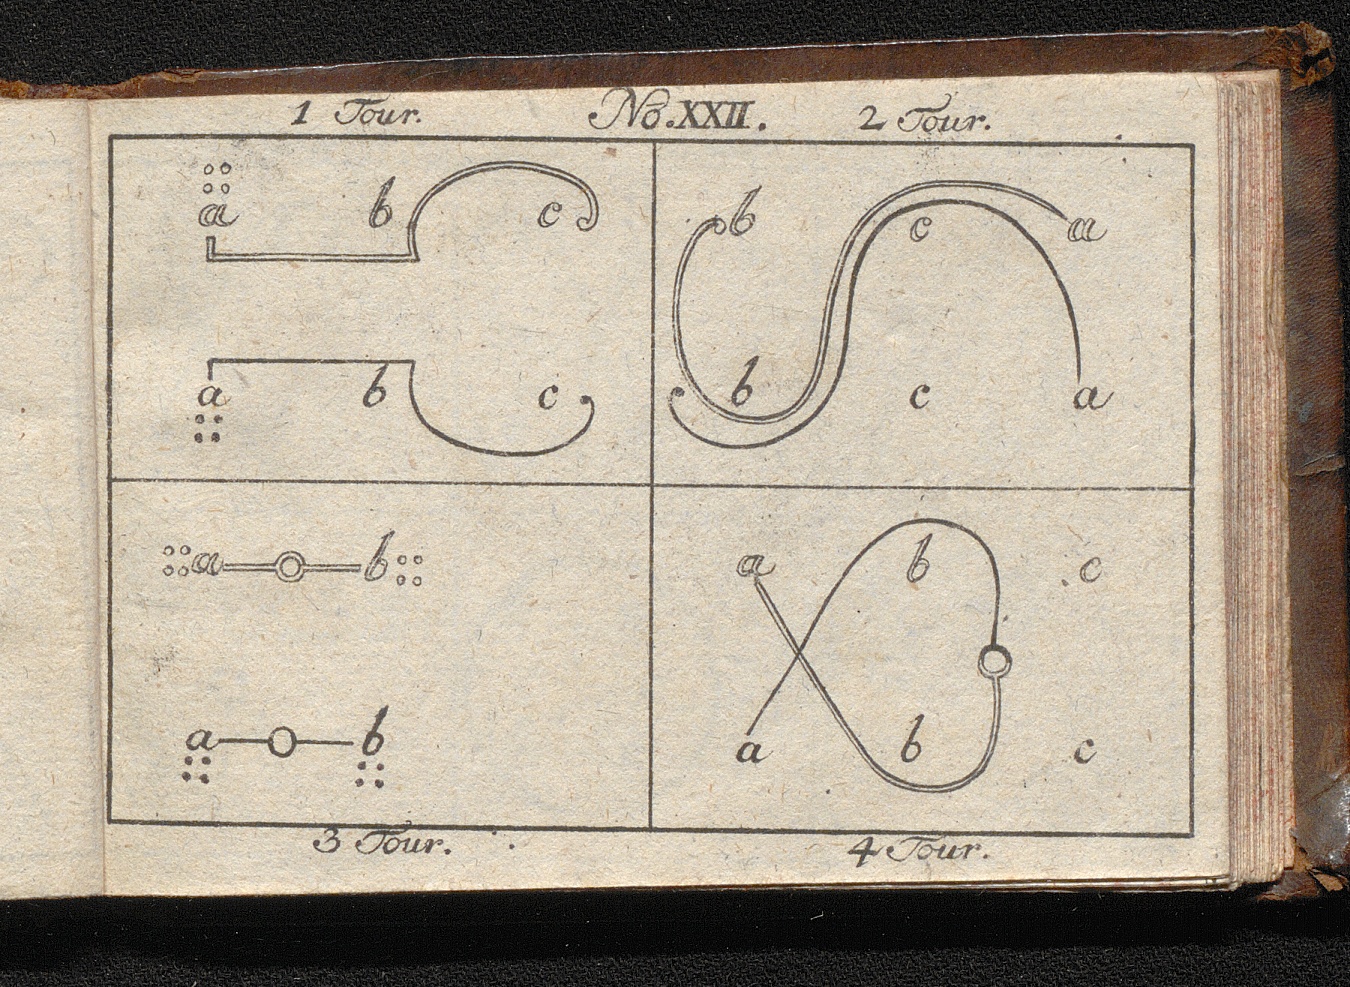 1 Tour. No. XXII. 2 Tour.
a b c
b c a
a b c
b c a
a b
a b c
a b
a b c
3 Tour. 4 Tour.